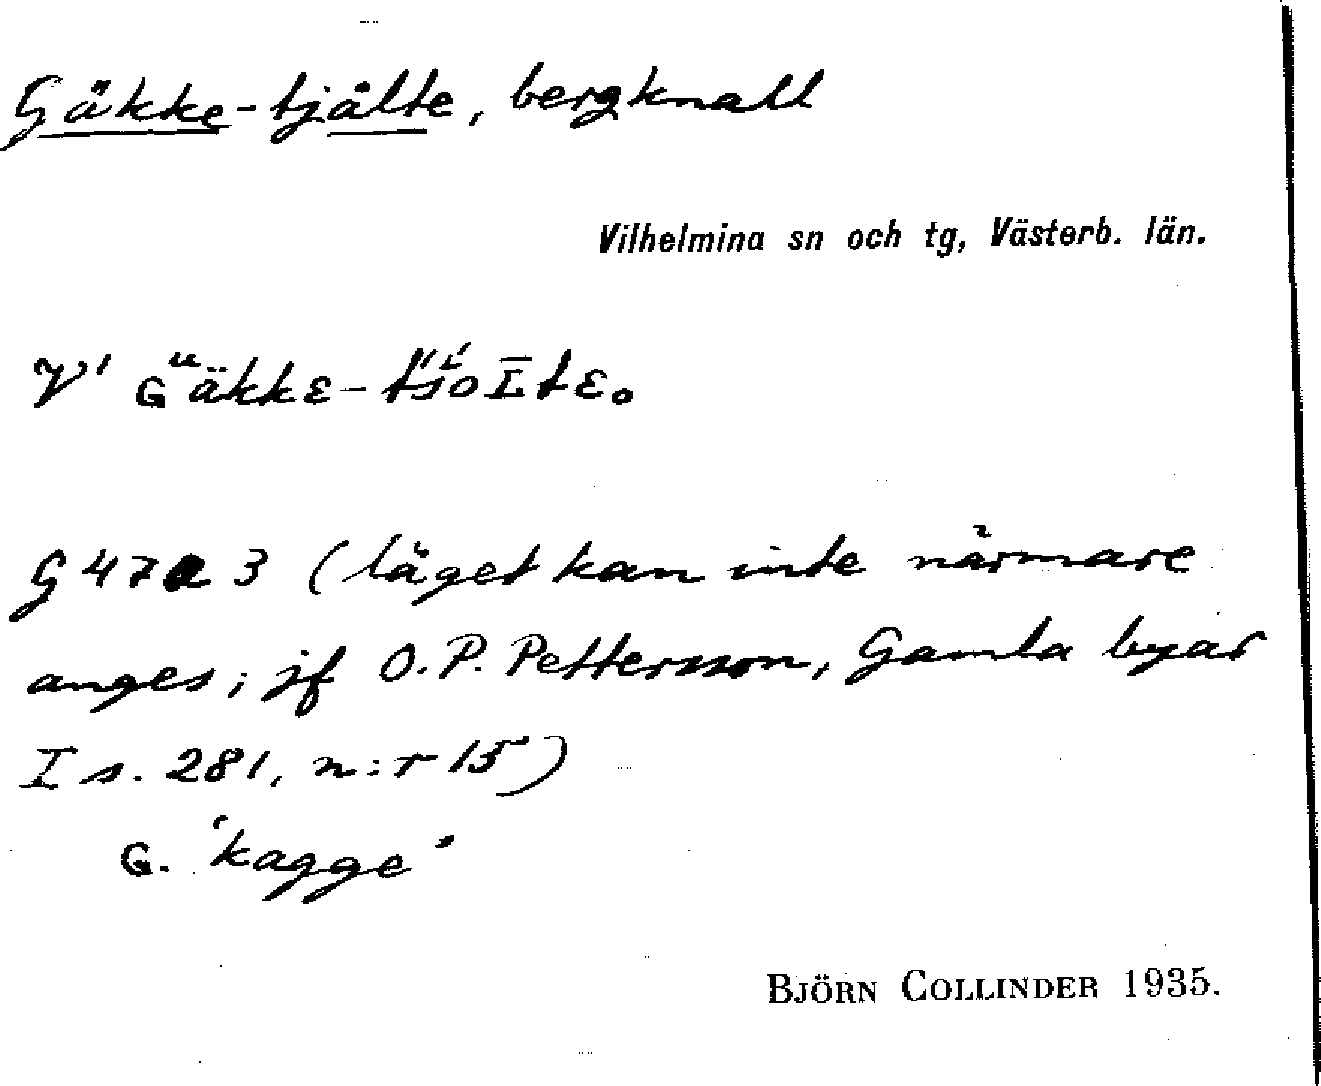 Gäkke-tjålte, bergknall
Vilhelmina sn och tg, Västerb. län.
G 47 a 3 (läget kan inte närmare
anges; jf O.P. Pettersson, Gamla byar
I s. 281, n:r 15)
G. 'kagge'
BJÖRN COLLINDER 1935.